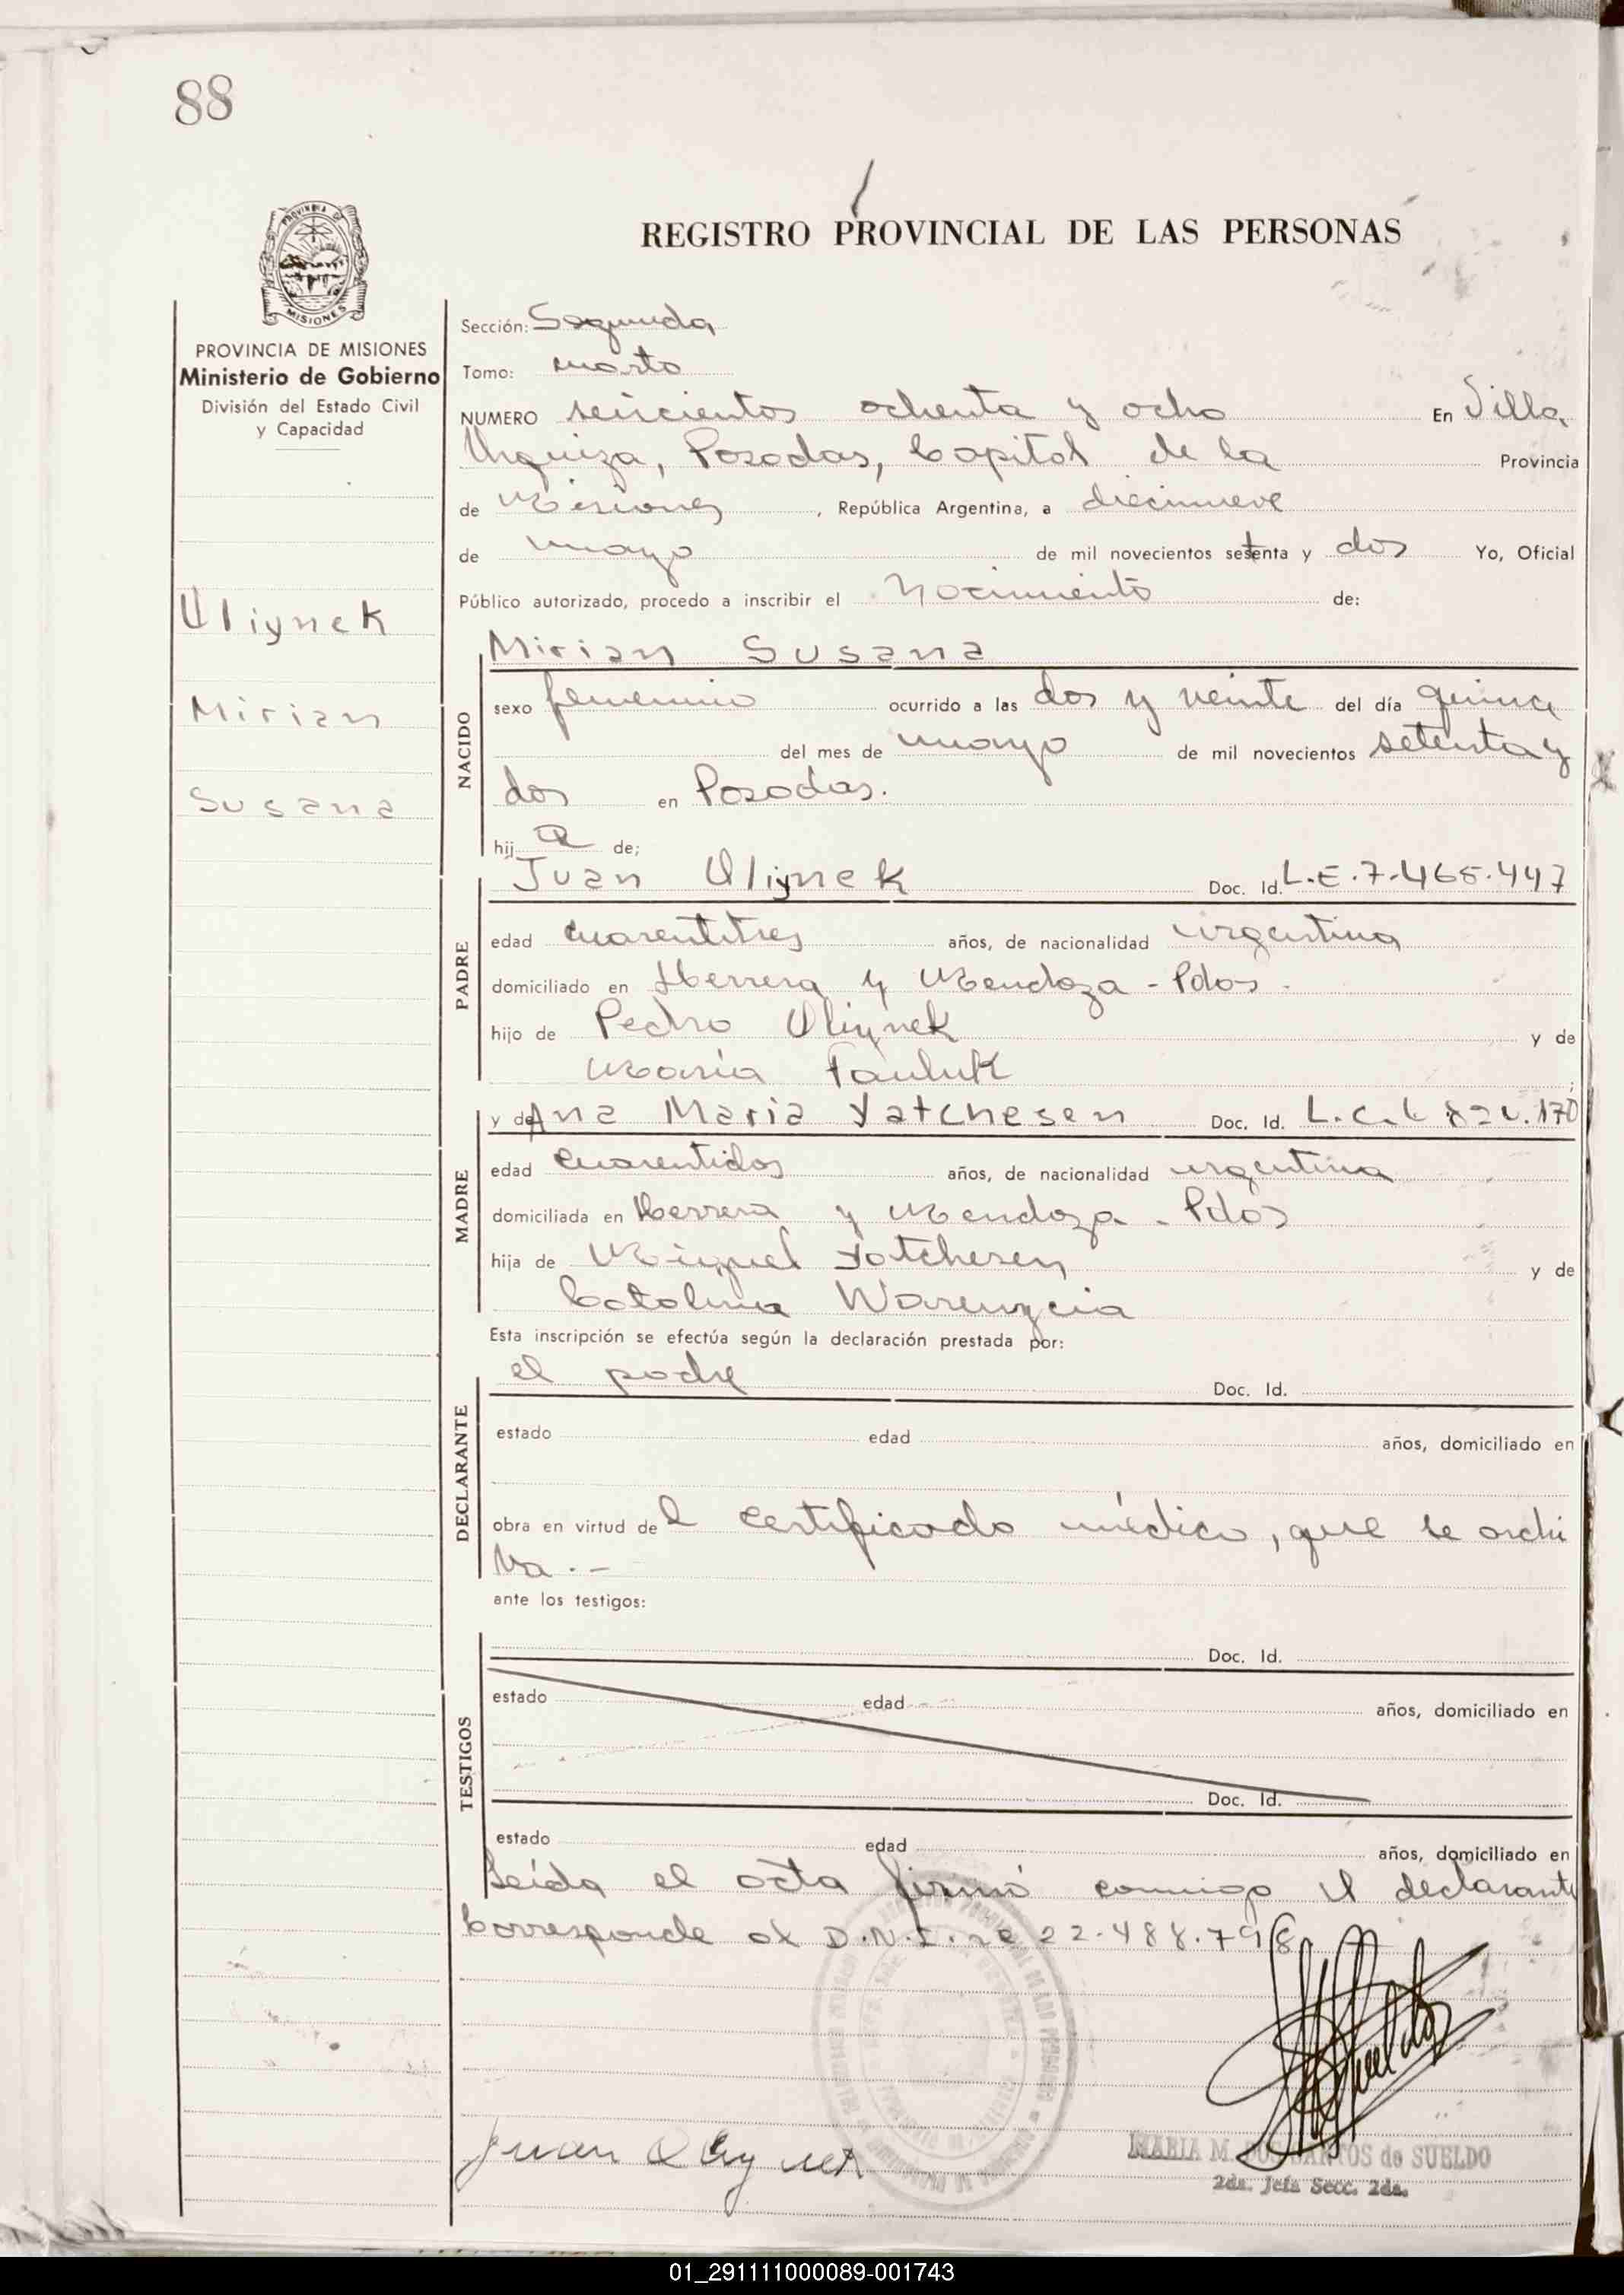 88
REGISTRO PROVINCIAL DE LAS PERSONAS
PROVINCIA DE
MISIONES
PROVINCIA DE MISIONES
Ministerio de Gobierno
División del Estado Civil
y Capacidad
Uliynek
Mirian
Susana
Sección: Segunda
Tomo: cuarto
NUMERO seiscientos ochenta y ocho En Villa
Urquiza, Posadas, Capital de la Provincia
de Misiones, República Argentina, a diecinueve
de mayo de mil novecientos setenta y dos Yo, Oficial
Público autorizado, procedo a inscribir el Nacimiento de:
NACIDO
Mirian Susana
sexo femenino ocurrido a las dos y veinte del día quince
del mes de mayo de mil novecientos setenta y
dos en Posadas.
hij a de;
PADRE
Juan Uliynek Doc. Id. L.E.7.465.447
edad cuarentitres años, de nacionalidad argentina
domiciliado en Herrera y Mendoza - Pdas.
hijo de Pedro Uliynek y de
María Pauluk;
MADRE
y de Ana Maria Yatchesen Doc. Id. L.C.
edad cuarentidos años, de nacionalidad argentina
domiciliada en Herrera y Mendoza - Pdas
hija de Miguel Yatchesen y de
Catalina
Esta inscripción se efectúa según la declaración prestada por:
DECLARANTE
el padre Doc. Id.
estado edad años, domiciliado en
obra en virtud del certificado médico, que se archi
va.-
ante los testigos:
TESTIGOS
Doc. Id.
estado edad años, domiciliado en
Doc. Id.
estado edad años, domiciliado en
Leída el acta firmó conmigo el declarante
Corresponde al D.N.I. nº 22.488.798
Juan Uliynek
MARIA M. DOS SANTOS de SUELDO
2da. Jefa Secc. 2da.
01_291111000089-001743